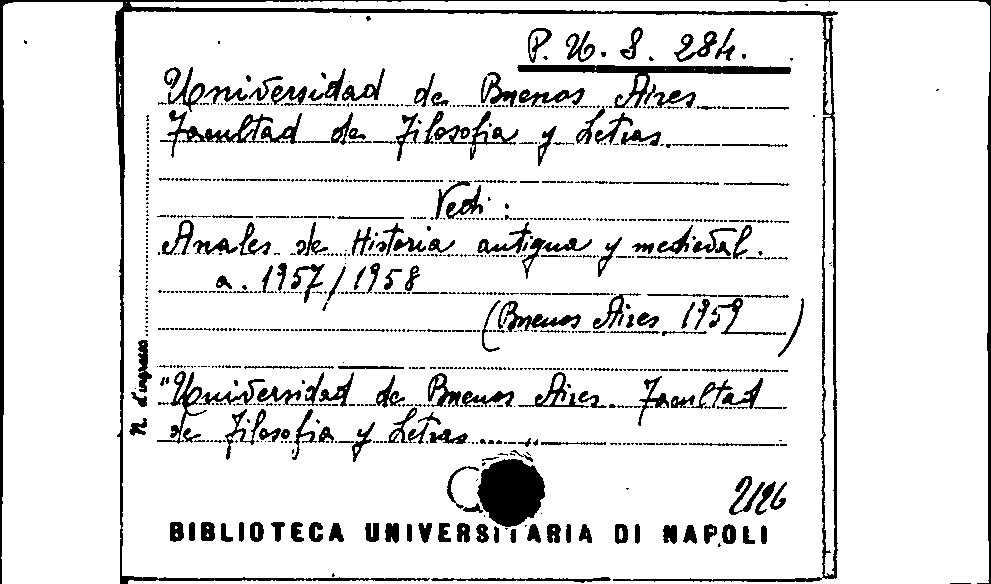 P. U. S. 284.
Universidad de Buenos Aires
Facultad de Filosofia y Letras.
Vedi:
Anales de Historia antigua y medieval.
a. 1957/1958
(Buenos Aires, 1959)
N. d'ingresso
"Universidad de Buenos Aires. Facultad
de Filosofia y Letras... "
2126
BIBLIOTECA UNIVERSITARIA DI NAPOLI